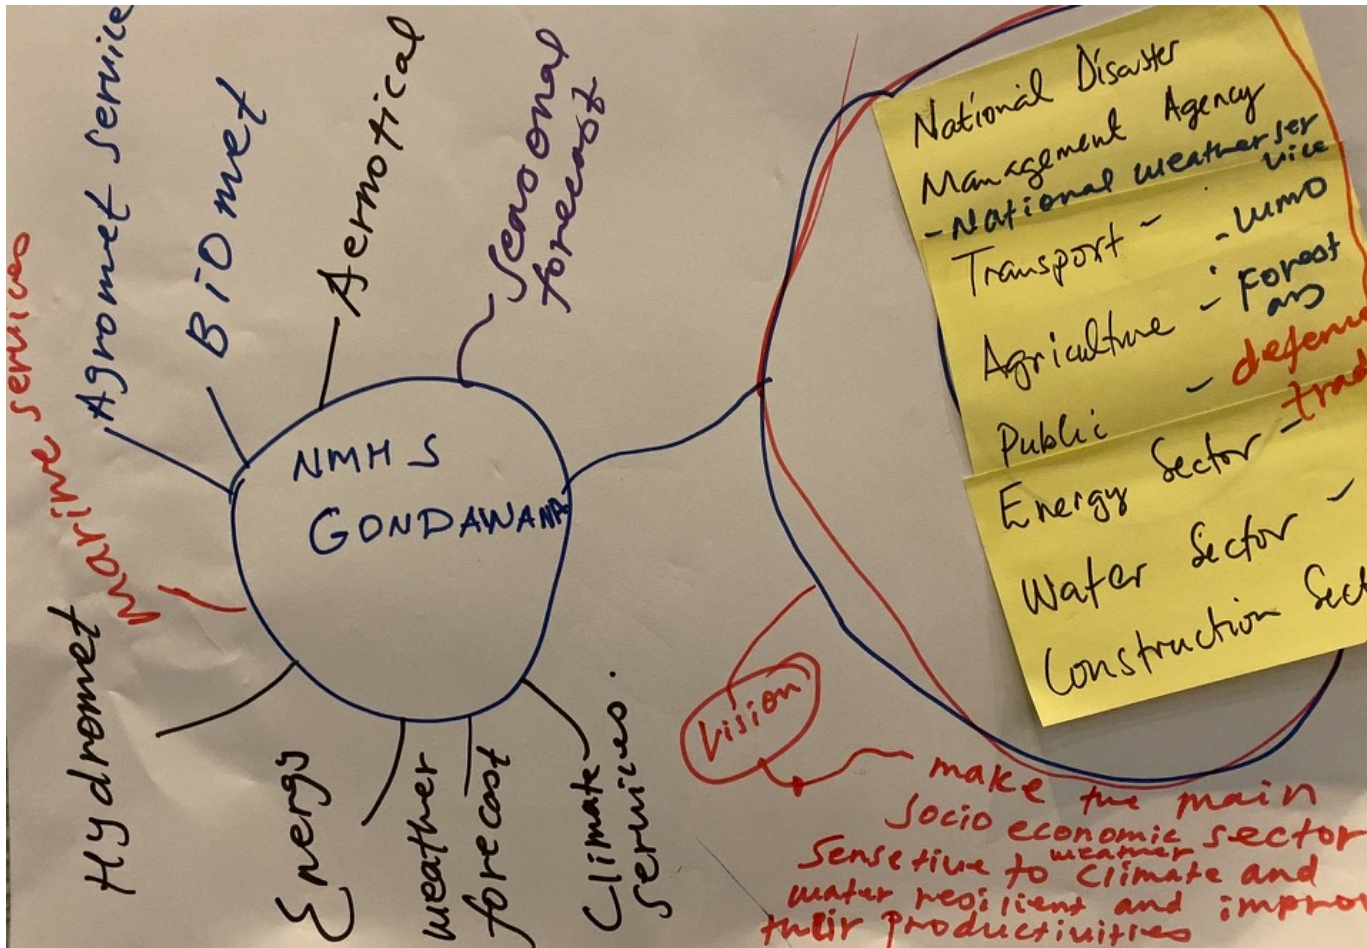 Agromet service
BiOmet
Aernotical
Seasonal
forecast
marine services
NMHS
GONDAWANA
Hydromet
Energy
weather
forecast
Climate
services.
National Disaster
Management Agency
- National weather ser
vice
Transport -
Agriculture - Forest
Public - defence
Energy Sector - trad
Water Sector -
Construction Sect
Vision
make the main
socio economic sector
Sensetive to weather climate and
water resilient and impro
their productivities